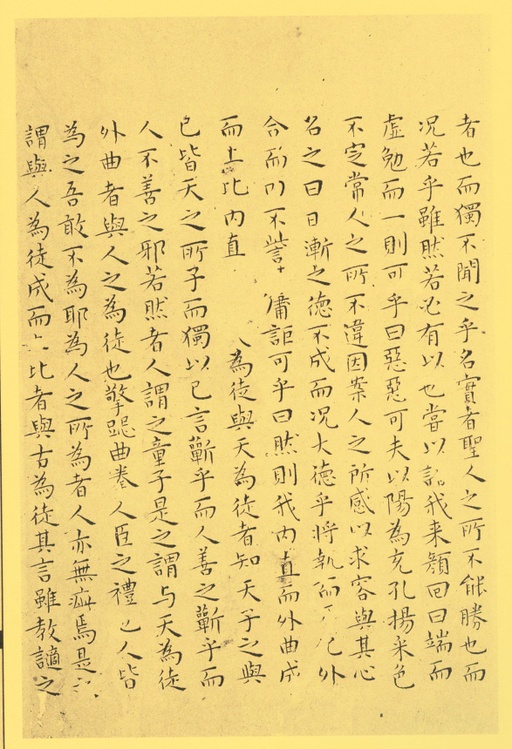 者也而獨不聞之乎名實者聖人之所不能勝也而
况若乎雖然若必有以也嘗以語我来顔回曰端而
虛勉而一則可乎曰惡惡可夫以陽為充孔揚采色
不定常人之所不違因案人之所感以求容與其心
名之曰日漸之徳不成而况大徳乎將執而外
合而不訾庸詎可乎曰然則我内直而外曲成
而上比内直為徒與天為徒者知天子之與
已皆天之所子而獨以已言蘄乎而人善之蘄乎而
人不善之邪若然者人謂之童子是之謂与天為徒
外曲者與人之為徒也擎跽曲拳人臣之禮也人皆
為之吾敢不為耶為人之所為者人亦無疵焉是
謂與人為徒成而上比者與古為徒其言雖教讁之